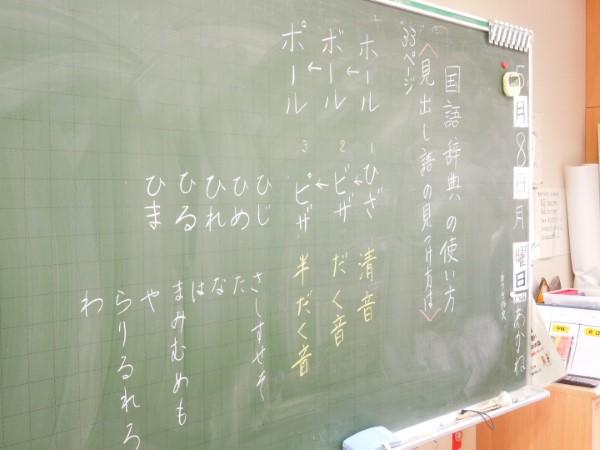 5月8日月曜日 あかね
国語辞典の使い方
〈見出し語の見つけ方は〉
33ページ
ホール
↓
ボール
↓
ポール
1 ひざ 清音
↓
2 ビザ だく音
↓
3 ピザ 半だく音
ひじ
ひめ
ひれ
ひる
ひま
さしすせそ
た
な
は
まみむめも
や
らりるれろ
わ